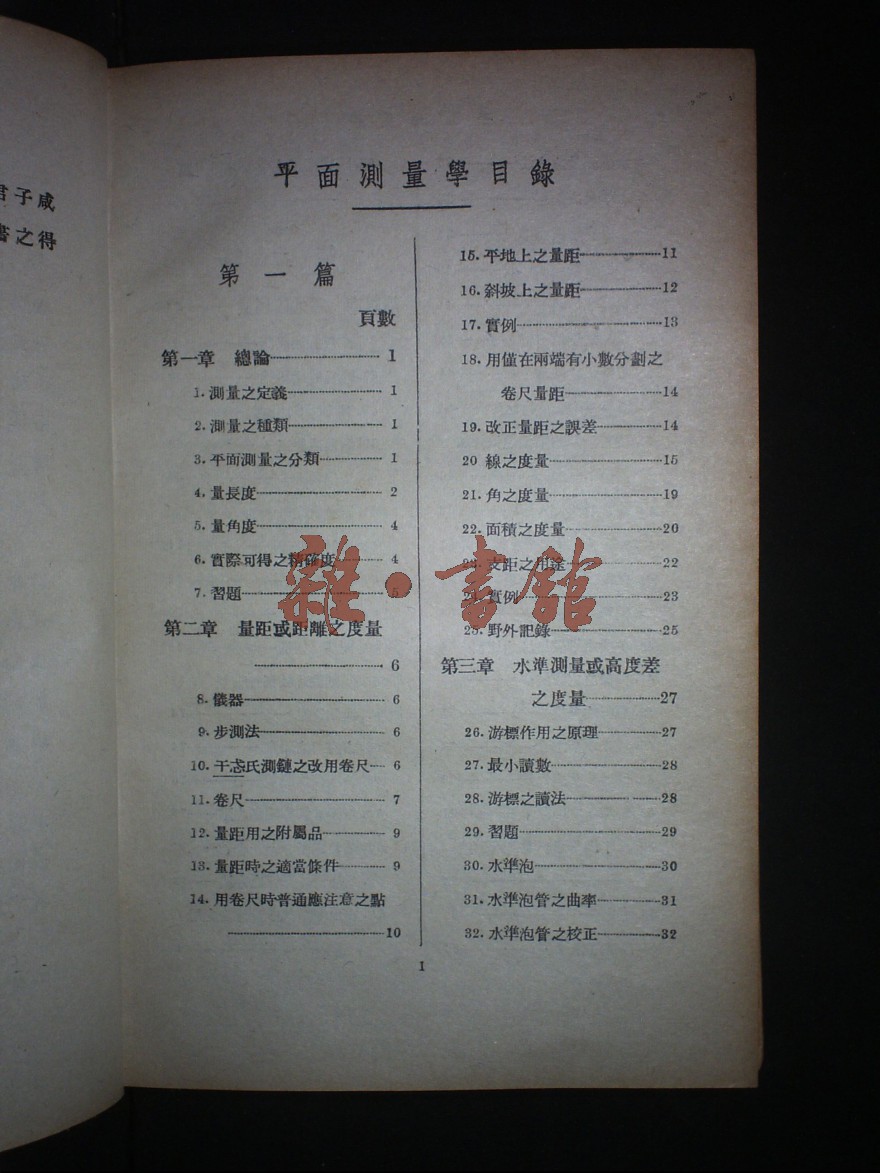 君子咸
書之得
平面測量學目錄
第一篇
頁數
第一章 總論 1
1. 測量之定義 1
2. 測量之種類 1
3. 平面測量之分類 1
4. 量長度 2
5. 量角度 4
6. 實際可得之精確度 4
7. 習題 5
第二章 量距或距離之度量
6
8. 儀器 6
9. 步測法 6
10. 干忞氏測鏈之改用卷尺 6
11. 卷尺 7
12. 量距用之附屬品 9
13. 量距時之適當條件 9
14. 用卷尺時普通應注意之點
10
15. 平地上之量距 11
16. 斜坡上之量距 12
17. 實例 13
18. 用僅在兩端有小數分劃之
卷尺量距 14
19. 改正量距之誤差 14
20 線之度量 15
21. 角之度量 19
22. 面積之度量 20
23. 支距之用途 22
24. 實例 23
25. 野外記錄 25
第三章 水準測量或高度差
之度量 27
26. 游標作用之原理 27
27. 最小讀數 28
28. 游標之讀法 28
29. 習題 29
30. 水準泡 30
31. 水準泡管之曲率 31
32. 水準泡管之校正 32
1
雜·書館